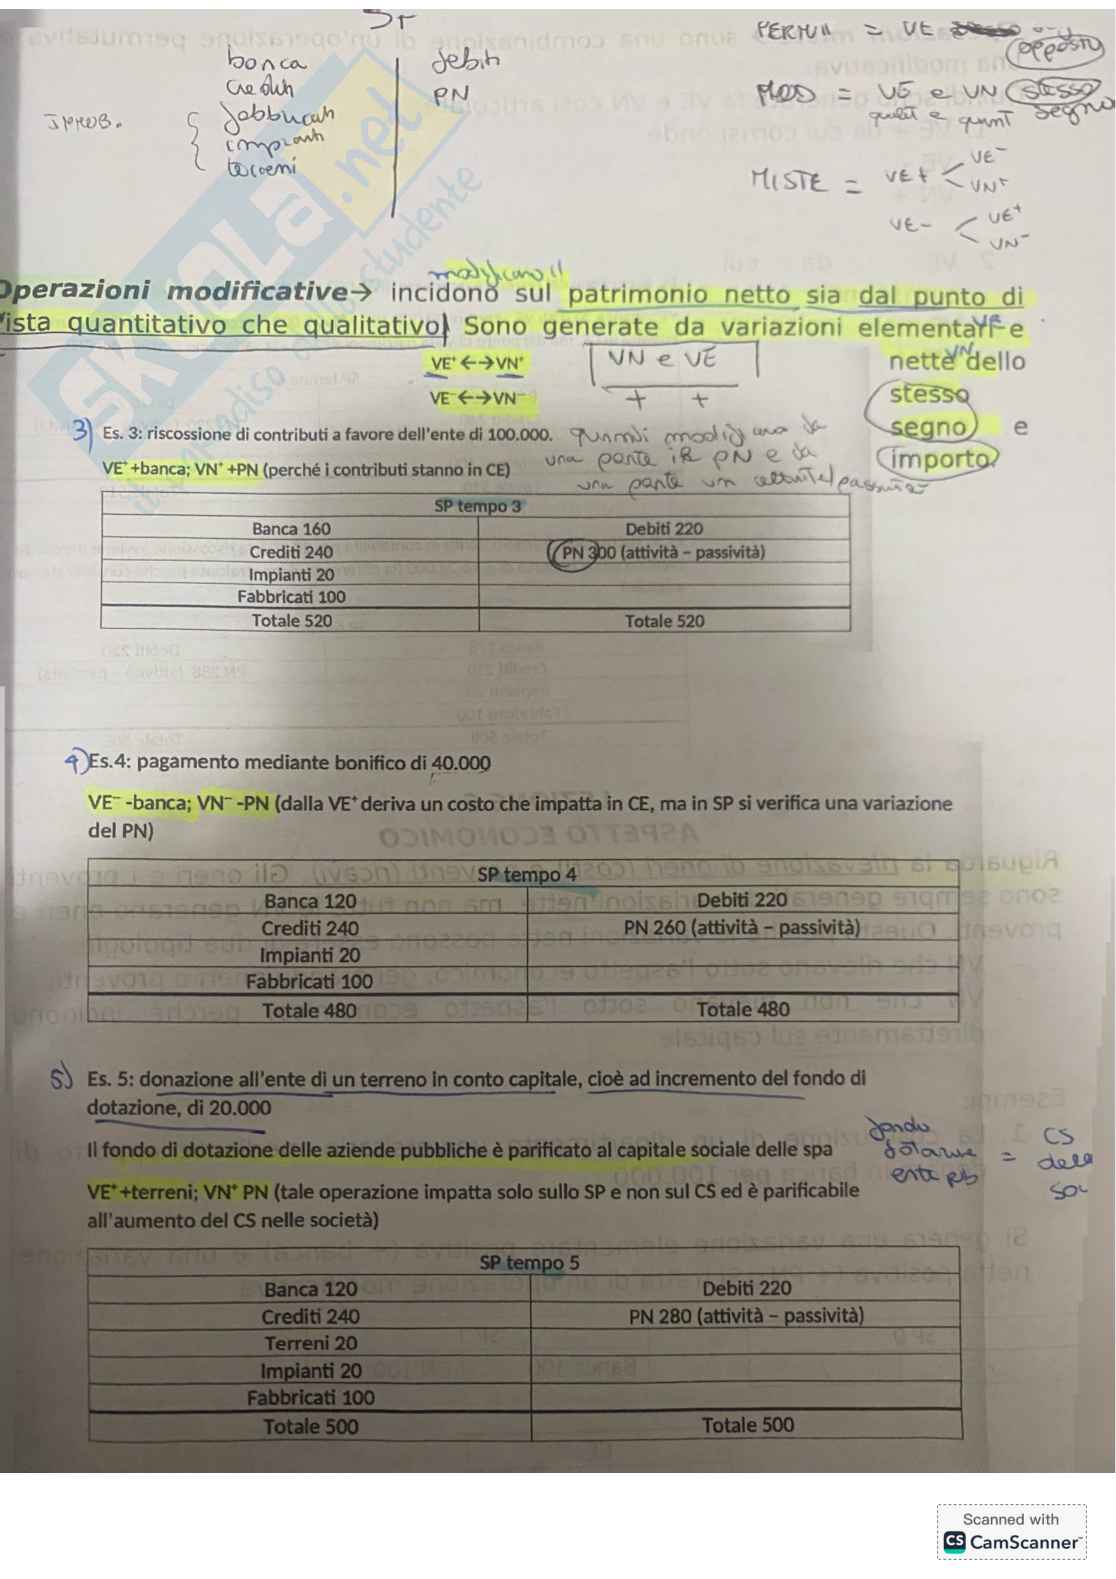 SP
banca debiti
crediti PN
IMMOB. fabbricati
impianti
terreni
PERMUT = VE
opposto
MOD = VE e VN stesso
segno
MISTE = VE+ VE-
VN+
VE- VE+
VN-
modificano il
Operazioni modificative→ incidono sul patrimonio netto sia dal punto di
vista quantitativo che qualitativo. Sono generate da variazioni elementari e
VE VN
nette dello
VE⁺ ←→VN⁺ VN e VE
+ +
VE⁻←→VN⁻
stesso
segno e
importo.
3) Es. 3: riscossione di contributi a favore dell'ente di 100.000.
quindi modificano da
una parte il PN e da
una parte un
VE⁺+banca; VN⁺ +PN (perché i contributi stanno in CE)
SP tempo 3
Banca 160 Debiti 220
Crediti 240 PN 300 (attività – passività)
Impianti 20
Fabbricati 100
Totale 520 Totale 520
4) Es.4: pagamento mediante bonifico di 40.000
VE⁻ -banca; VN⁻ -PN (dalla VE⁺ deriva un costo che impatta in CE, ma in SP si verifica una variazione
del PN)
SP tempo 4
Banca 120 Debiti 220
Crediti 240 PN 260 (attività – passività)
Impianti 20
Fabbricati 100
Totale 480 Totale 480
5) Es. 5: donazione all'ente di un terreno in conto capitale, cioè ad incremento del fondo di
dotazione, di 20.000
Il fondo di dotazione delle aziende pubbliche è parificato al capitale sociale delle spa
fondo
dotazione = CS
ente pb delle
soc
VE⁺+terreni; VN⁺ PN (tale operazione impatta solo sullo SP e non sul CS ed è parificabile
all'aumento del CS nelle società)
SP tempo 5
Banca 120 Debiti 220
Crediti 240 PN 280 (attività – passività)
Terreni 20
Impianti 20
Fabbricati 100
Totale 500 Totale 500
Skuola.net
Scanned with
CS CamScanner